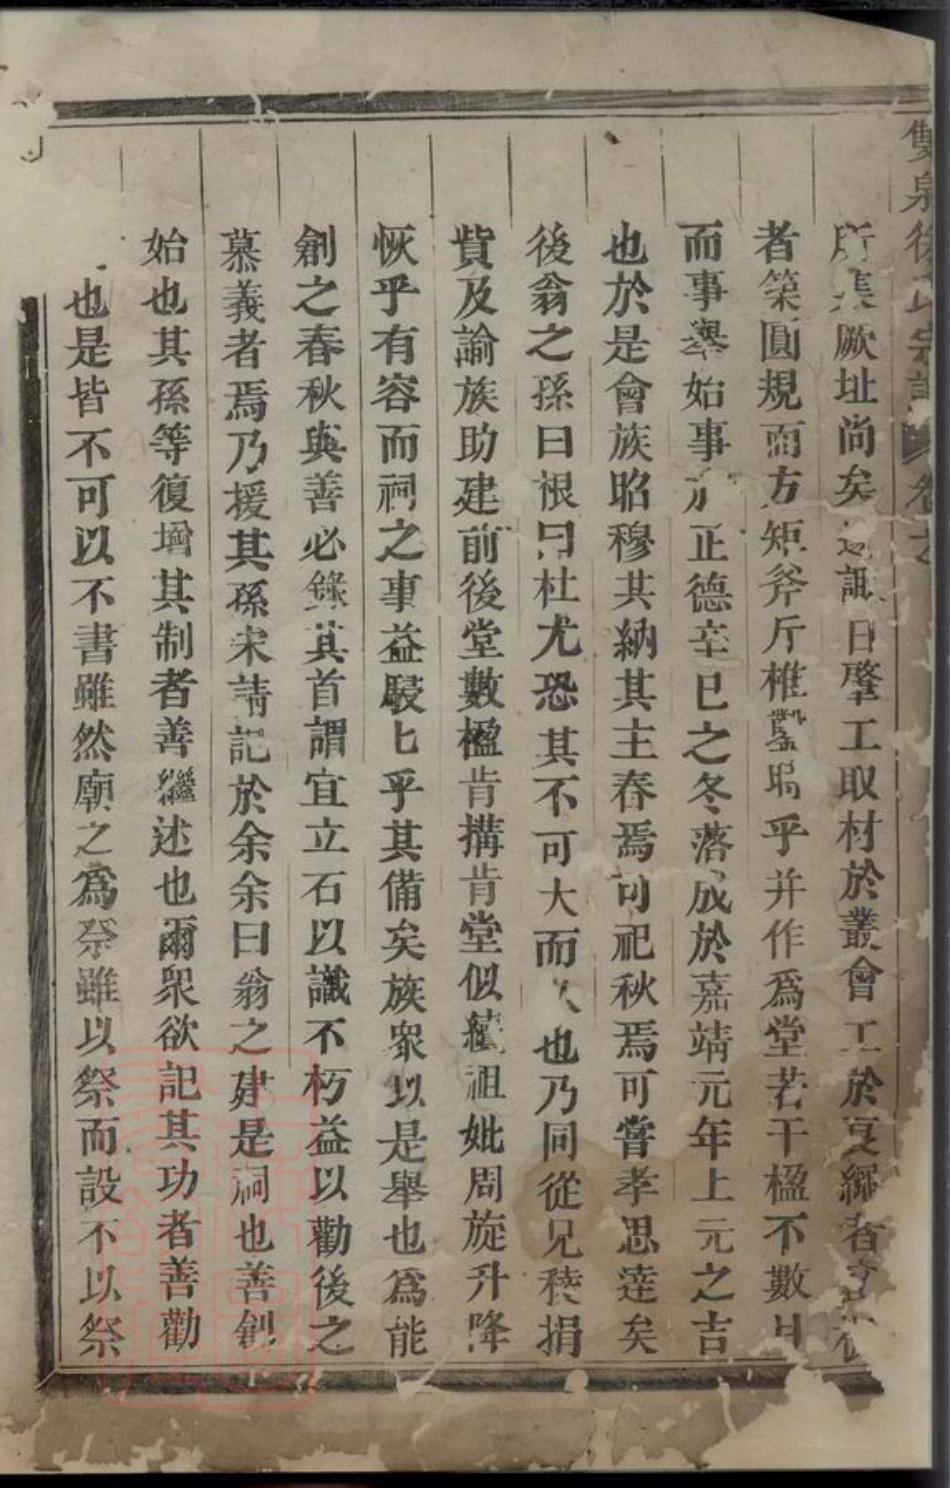 雙泉徐氏宗譜 卷之
所集厥址尚矣 諏日肇工取材於叢會工於
者築圓規而方矩斧斤椎鑿 乎并作爲堂若干楹不數日
而事舉始事於正德辛巳之冬落成於嘉靖元年上元之吉
也於是會族昭穆共納其主春焉可祀秋焉可嘗孝思達矣
後翁之孫曰根曰杜尤恐其不可大而久也乃同從兄稜捐
貲及諭族助建前後堂數楹肯搆肯堂似續祖妣周旋升降
恢乎有容而祠之事益駸匕乎其備矣族衆以是舉也爲能
創之春秋與善必錄其首謂宜立石以識不朽益以勸後之
慕義者焉乃援其孫來請記於余余曰翁之建是祠也善創
始也其孫等復增其制者善繼述也爾衆欲記其功者善勸
也是皆不可以不書雖然廟之爲祭雖以祭而設不以祭